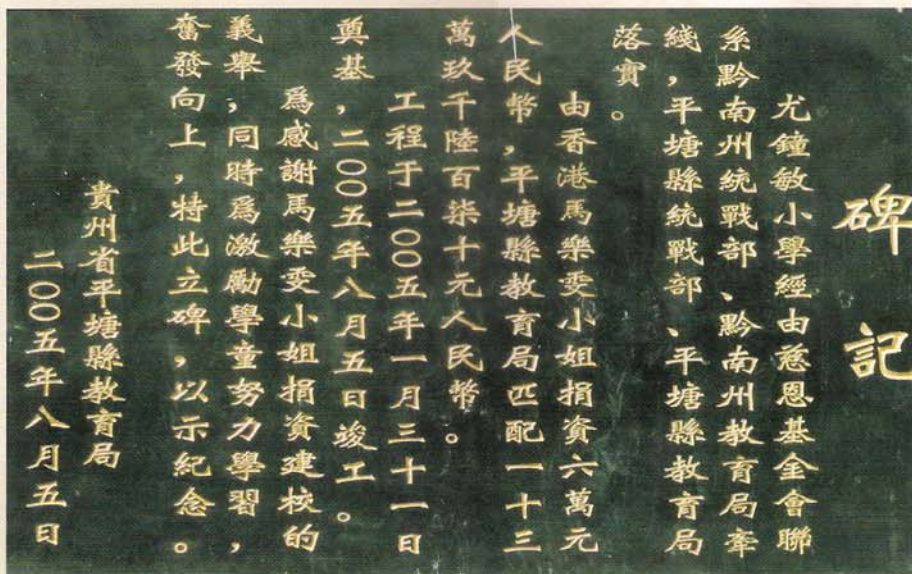 碑記
尤鐘敏小學經由慈恩基金會聯
系黔南州統戰部、黔南州教育局牽
綫，平塘縣統戰部、平塘縣教育局
落實。
由香港馬樂雯小姐捐資六萬元
人民幣，平塘縣教育局匹配一十三
萬玖千陸百柒十元人民幣。
工程于二〇〇五年一月三十一日
奠基，二〇〇五年八月五日竣工。
爲感謝馬樂雯小姐捐資建校的
義舉，同時爲激勵學童努力學習，
奮發向上，特此立碑，以示紀念。
貴州省平塘縣教育局
二〇〇五年八月五日